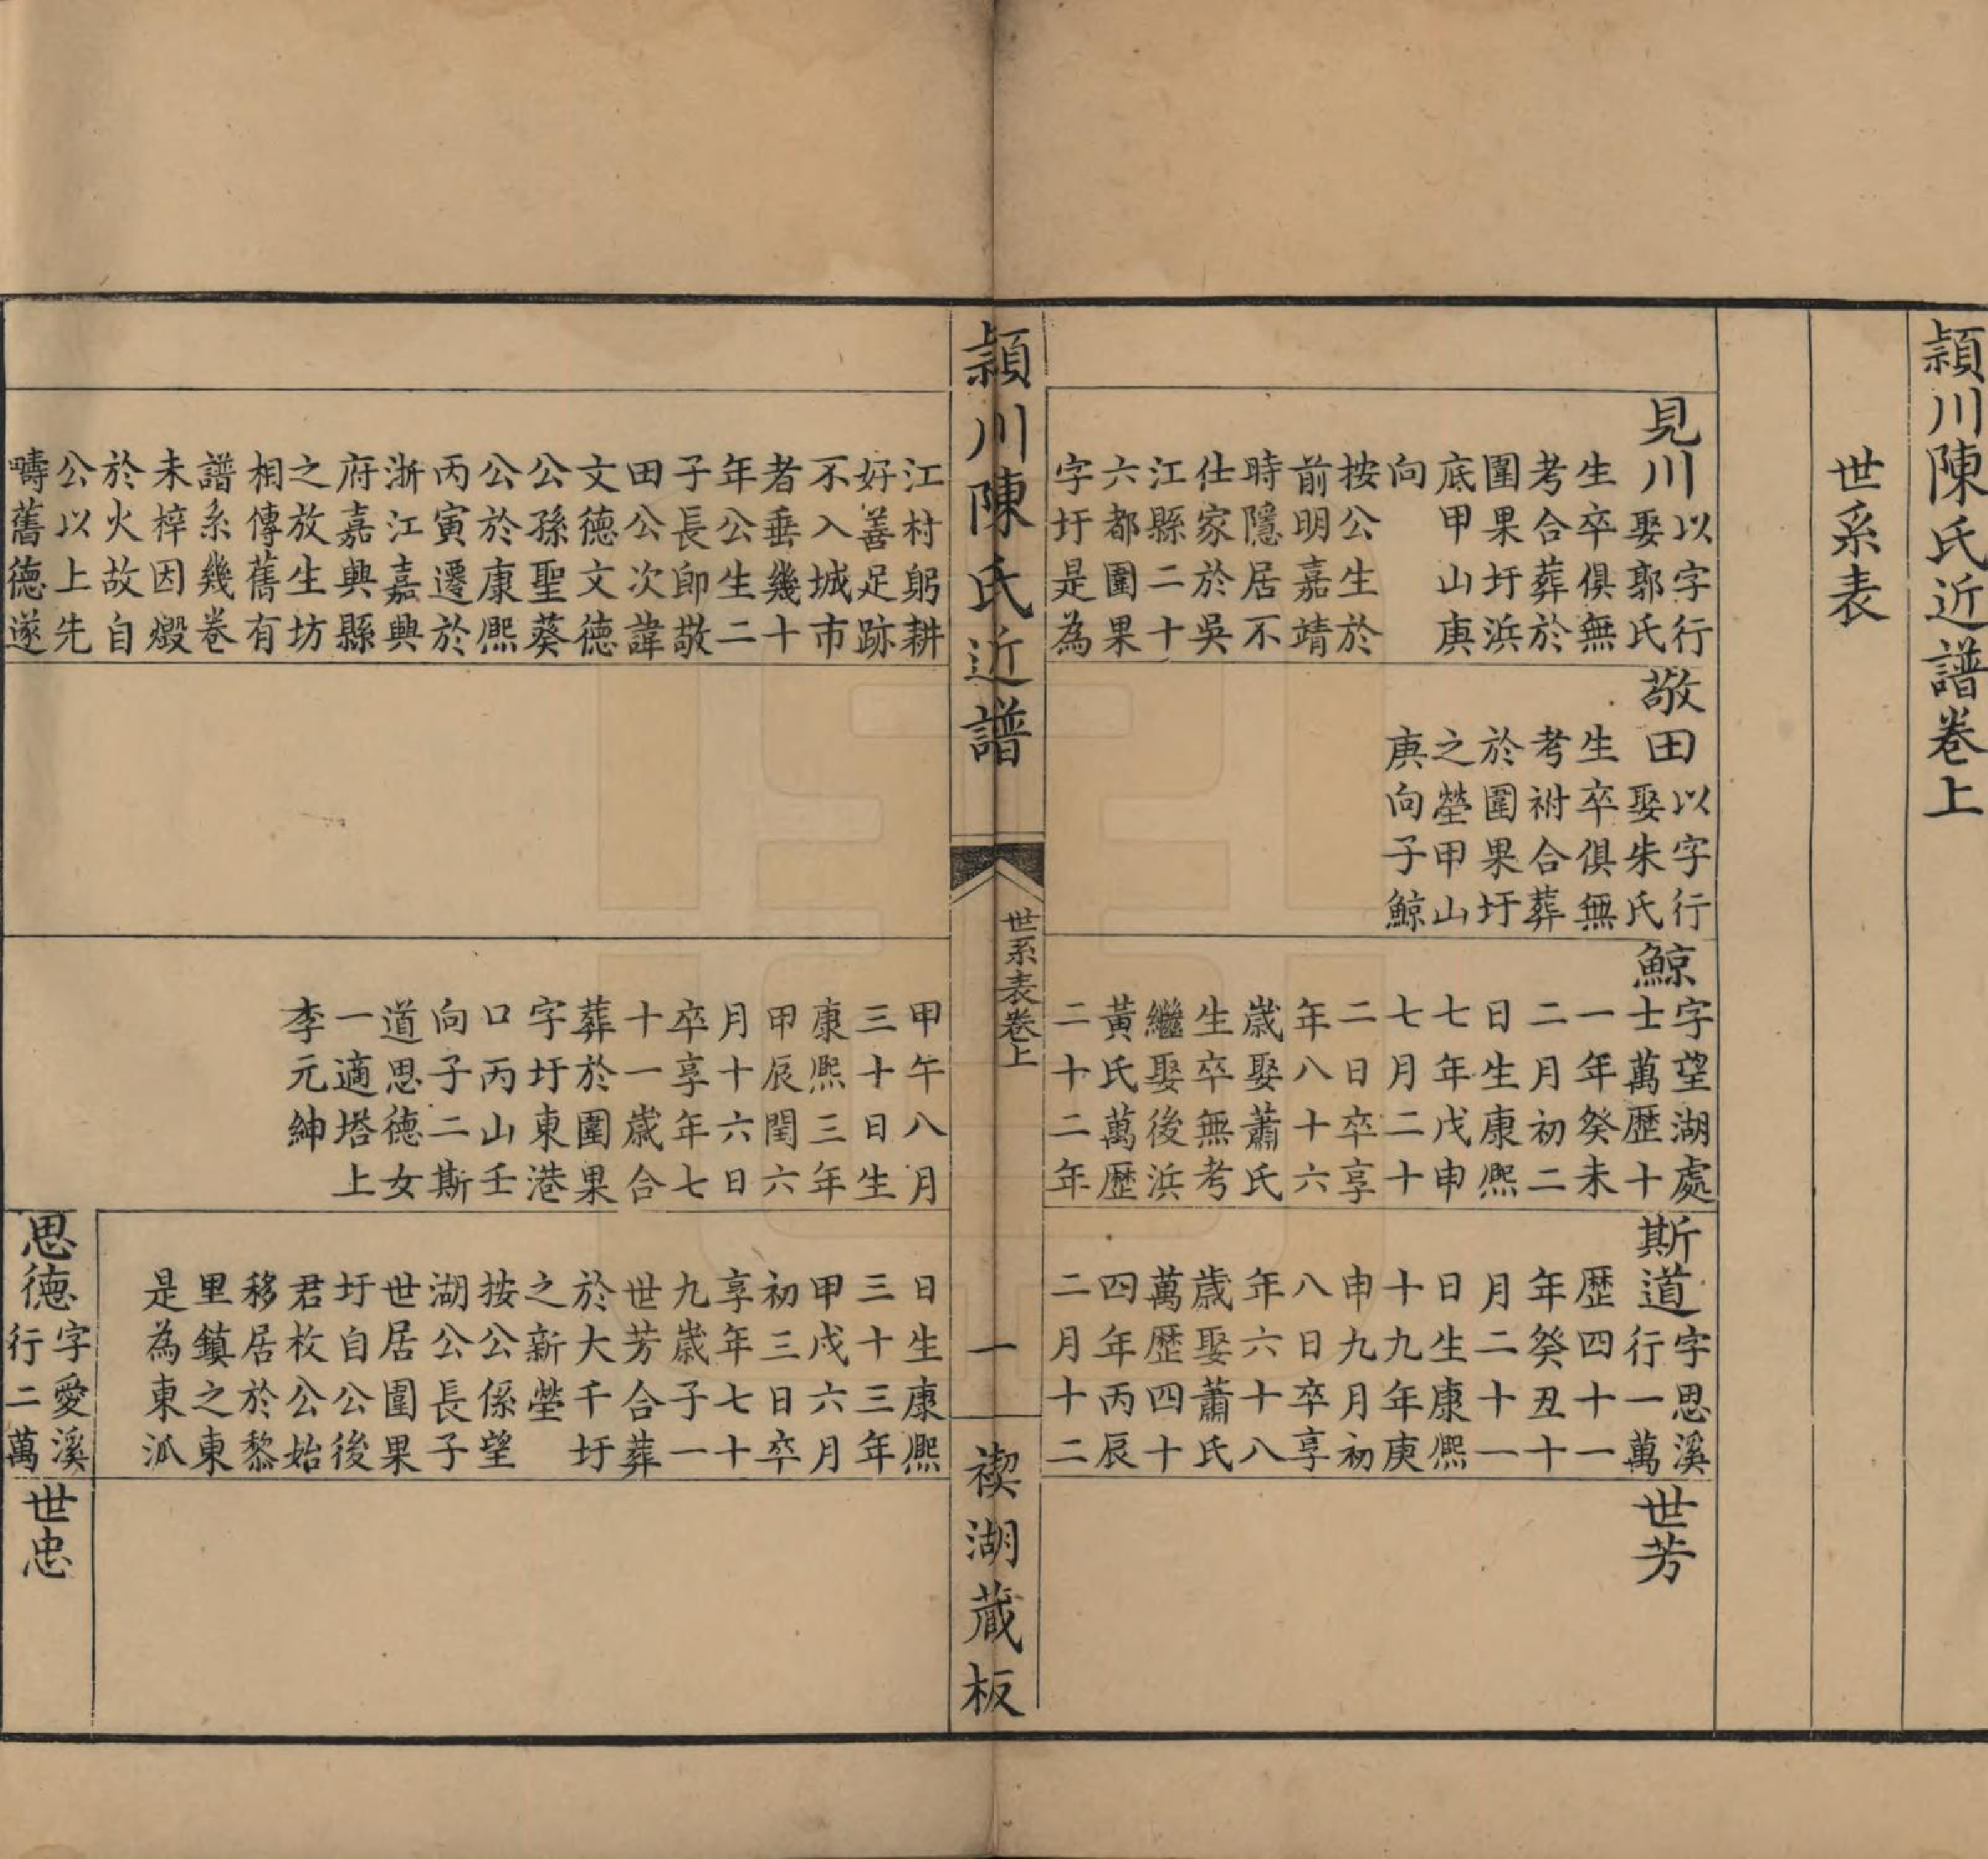 穎川陳氏近譜卷上
世系表
見川
以字行
娶郭氏
生卒俱無
考合葬於
圍果圩浜
底甲山庚
向
按公生於
前明嘉靖
時隱居不
仕家於吳
江縣二十
六都圍果
字圩是為
敬田
以字行
娶朱氏
生卒俱無
考祔合葬
於圍果圩
之塋甲山
庚向子鯨
鯨
字望湖處
士萬歷十
一年癸未
二月初二
日生康熈
七年戊申
七月二十
二日卒享
年八十六
歲娶蕭氏
生卒無考
繼娶後浜
黃氏萬歷
二十二年
斯道
字思溪
行一萬
歷四十一
年癸丑十
月二十一
日生康熈
十九年庚
申九月初
八日卒享
年六十八
歲娶蕭氏
萬歷四十
四年丙辰
二月十二
世芳
穎川陳氏近譜
世系表卷上
一
禊湖蕆板
江村躬耕
好善足跡
不入城市
者垂幾十
年公生二
子長即敬
田公次諱
文德文德
公孫聖葵
公於康熈
丙寅遷於
浙江嘉興
府嘉興縣
之放生坊
相傳舊有
譜系幾卷
未梓因燬
於火故自
公以上先
疇舊德遂
甲午八月
三十日生
康熈三年
甲辰閏六
月十六日
卒享年七
十一歲合
葬於圍果
字圩東港
口丙山壬
向子二斯
道思德女
一適塔上
李元紳
日生康熈
三十三年
甲戌六月
初三日卒
享年七十
九歲子一
世芳合葬
於大千圩
之新塋
按公係望
湖公長子
世居圍果
圩自公後
君枚公始
移居於黎
里鎮之東
是為東派
思德
字愛溪
行二萬
世忠